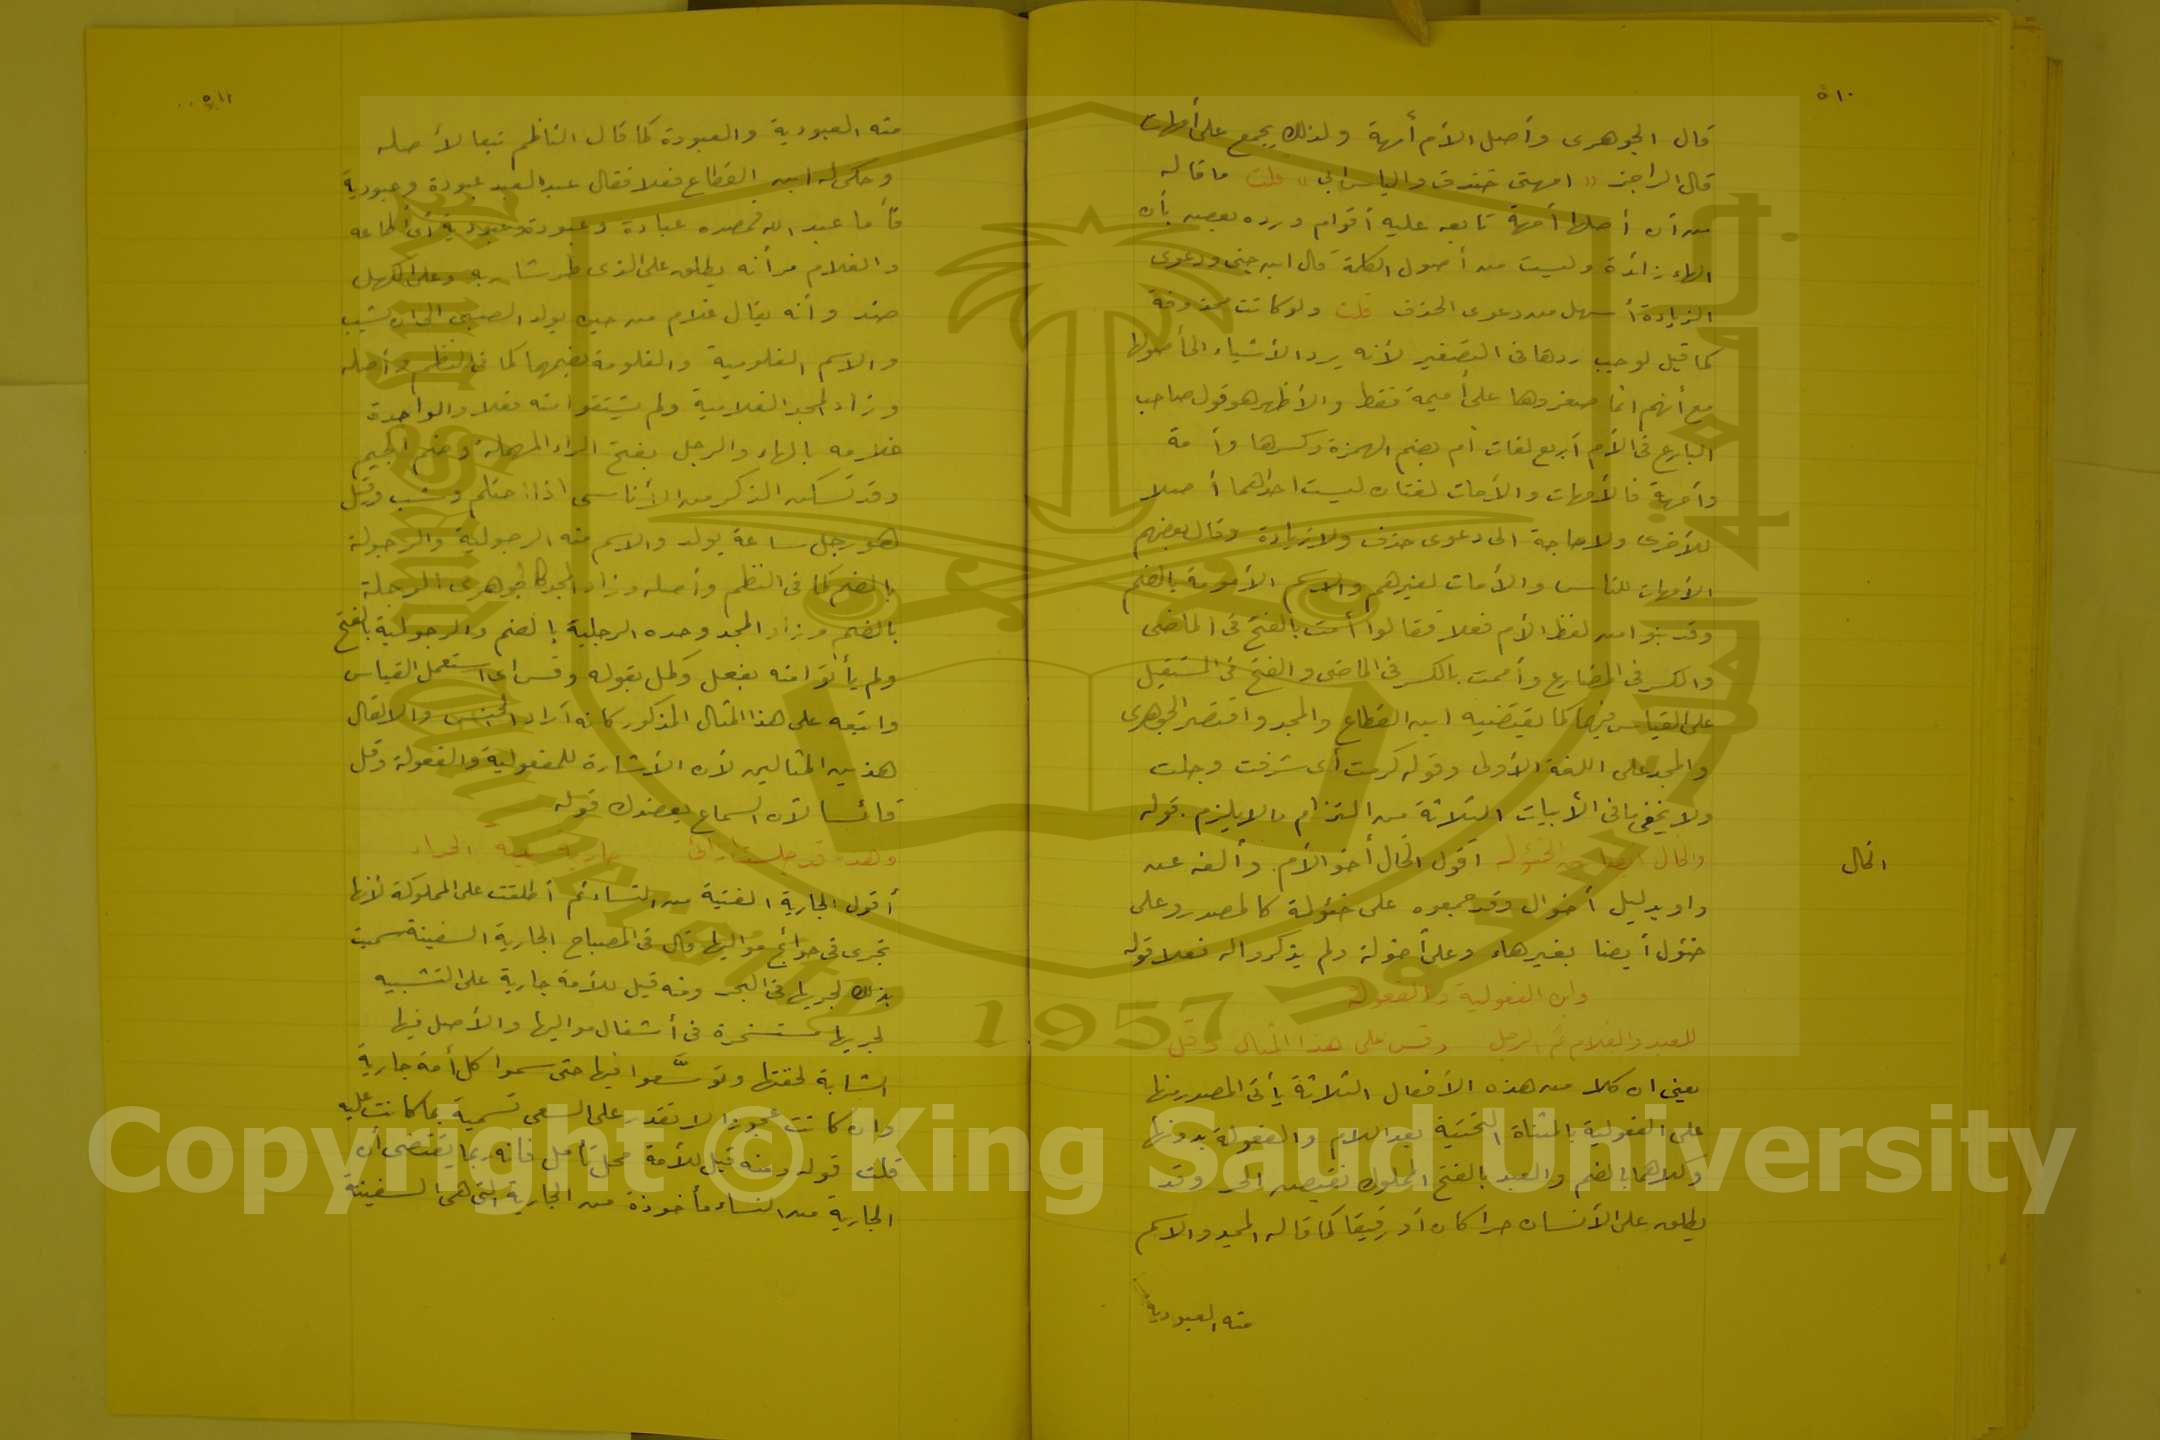 ٥١٠
قال الجوهرى وأصل الأم أمهة ولذلك يجمع على أمهات
قال الراجز " امهتى خندف والياس ابى " قلت ما قاله
من أن أصلها أمهة تابعه عليه أقوام ورده بعضهم بأن
الهاء زائدة وليست من أصول الكلمة قال ابن جنى ودعوى
الزيادة أسهل من دعوى الحذف قلت ولو كانت محذوفة
كما قيل لوجب ردها فى التصغير لأنه يرد الأشياء الى أصولها
مع أنهم انما صغروها على أميمة فقط والأظهر هو قول صاحب
البارع فى الأم أربع لغات أم بضم الهمزة وكسرها وأمة
وأمهة فالأمهات والأمات لغتان ليست احداهما أصلا
للأخرى ولا حاجة الى دعوى حذف ولا زيادة وقال بعضهم
الأمهات للناس والأمات لغيرهم والاسم الأمومة بالضم
وقد بنوا من لفظ الأم فعلا فقالوا أمت بالفتح فى الماضى
والكسر فى المضارع وأممت بالكسر فى الماضى والفتح فى المستقبل
على القياس فيهما كما يقتضيه ابن القطاع والمجد واقتصر الجوهرى
والمجد على اللغة الأولى وقوله كرمت أى شرفت وجلت
ولا يخفى ما فى الأبيات الثلاثة من التزام ما لا يلزم . قوله
والخال أيضا من الخئوله أقول الخال أخو الأم . وألفه عن
الخال
واو بدليل أخوال وقد جمعوه على خئولة كالمصدر وعلى
خئول أيضا بغير هاء وعلى أخولة ولم يذكروا له فعلا قوله
وابن الفعولية والفعولة
للعبد والغلام ثم الرجل وقس على هذا المثال وقل
يعنى ان كلا من هذه الأفعال الثلاثة يأتى المصدر منها
على الفعولية بالمثناة التحتية بعد اللام والفعولة بدونها
وكلاهما بالضم والعبد بالفتح المملوك نقيض الحر وقد
يطلق على الأنسان حرا كان أو رقيقا كما قاله المجد والاسم
منه العبودية
٥١١
منه العبودية والعبودة كما قال الناظم تبعا لأصله
وحكى له ابن القطاع فعلا فقال عبد العبد عبودة وعبودية
فأما عبد الله فمصدره عبادة وعبودة وعبودية أى أطاعه
والغلام مر أنه يطلق على الذى طر شاربه وعلى الكهل
ضد وأنه يقال غلام من حين يولد الصبى الى ان يشب
والاسم الغلومية والغلومة بضمهما كما فى النظم وأصله
وزاد المجد الغلامية ولم يشتقوا منه فعلا والواحدة
غلامه بالهاء والرجل بفتح الراء المهملة وضم الجيم
وقد تسكن الذكر من الأناسى اذا احتلم وشب وقيل
هو رجل ساعة يولد والاسم منه الرجولية والرجولة
بالضم كما فى النظم وأصله وزاد المجد كالجوهرى الرجلة
بالضم وزاد المجد وحده الرجلية بالضم والرجولية بالفتح
ولم يأتوا منه بفعل وكمل بقوله وقس اى استعمل القياس
واتبعه على هذا المثال المذكور كانه أراد الجنس والا لقال
هذين المثالين لأن الأشارة للمفعولية والفعولة وقل
قائسا لأن السماع يعضدك قوله
وهذه قد جلست ازائى جارية بينة الجراء
أقول الجارية الفتية من النساء ثم أطلقت على المملوكة لأنها
تجرى فى حوائج مواليها قال فى المصباح الجارية السفينة سميت
بذلك لجريها فى البحر ومنه قيل للأمة جارية على التشبيه
لجريها مستسخرة فى أشغال مواليها والأصل فيها
الشابة لخفتها وتوسّعوا فيها حتى سموا كل أمة جارية
وان كانت عجوزا لا تقدر على السعى تسمية بما كانت عليه
قلت قوله ومنه قيل للأمة محل تأمل فانه ربما يقتضى أن
الجارية من النساء مأخوذة من الجارية التى هى السفينة
جامعة الملك سعود
King Saud University
1957
Copyright © King Saud University